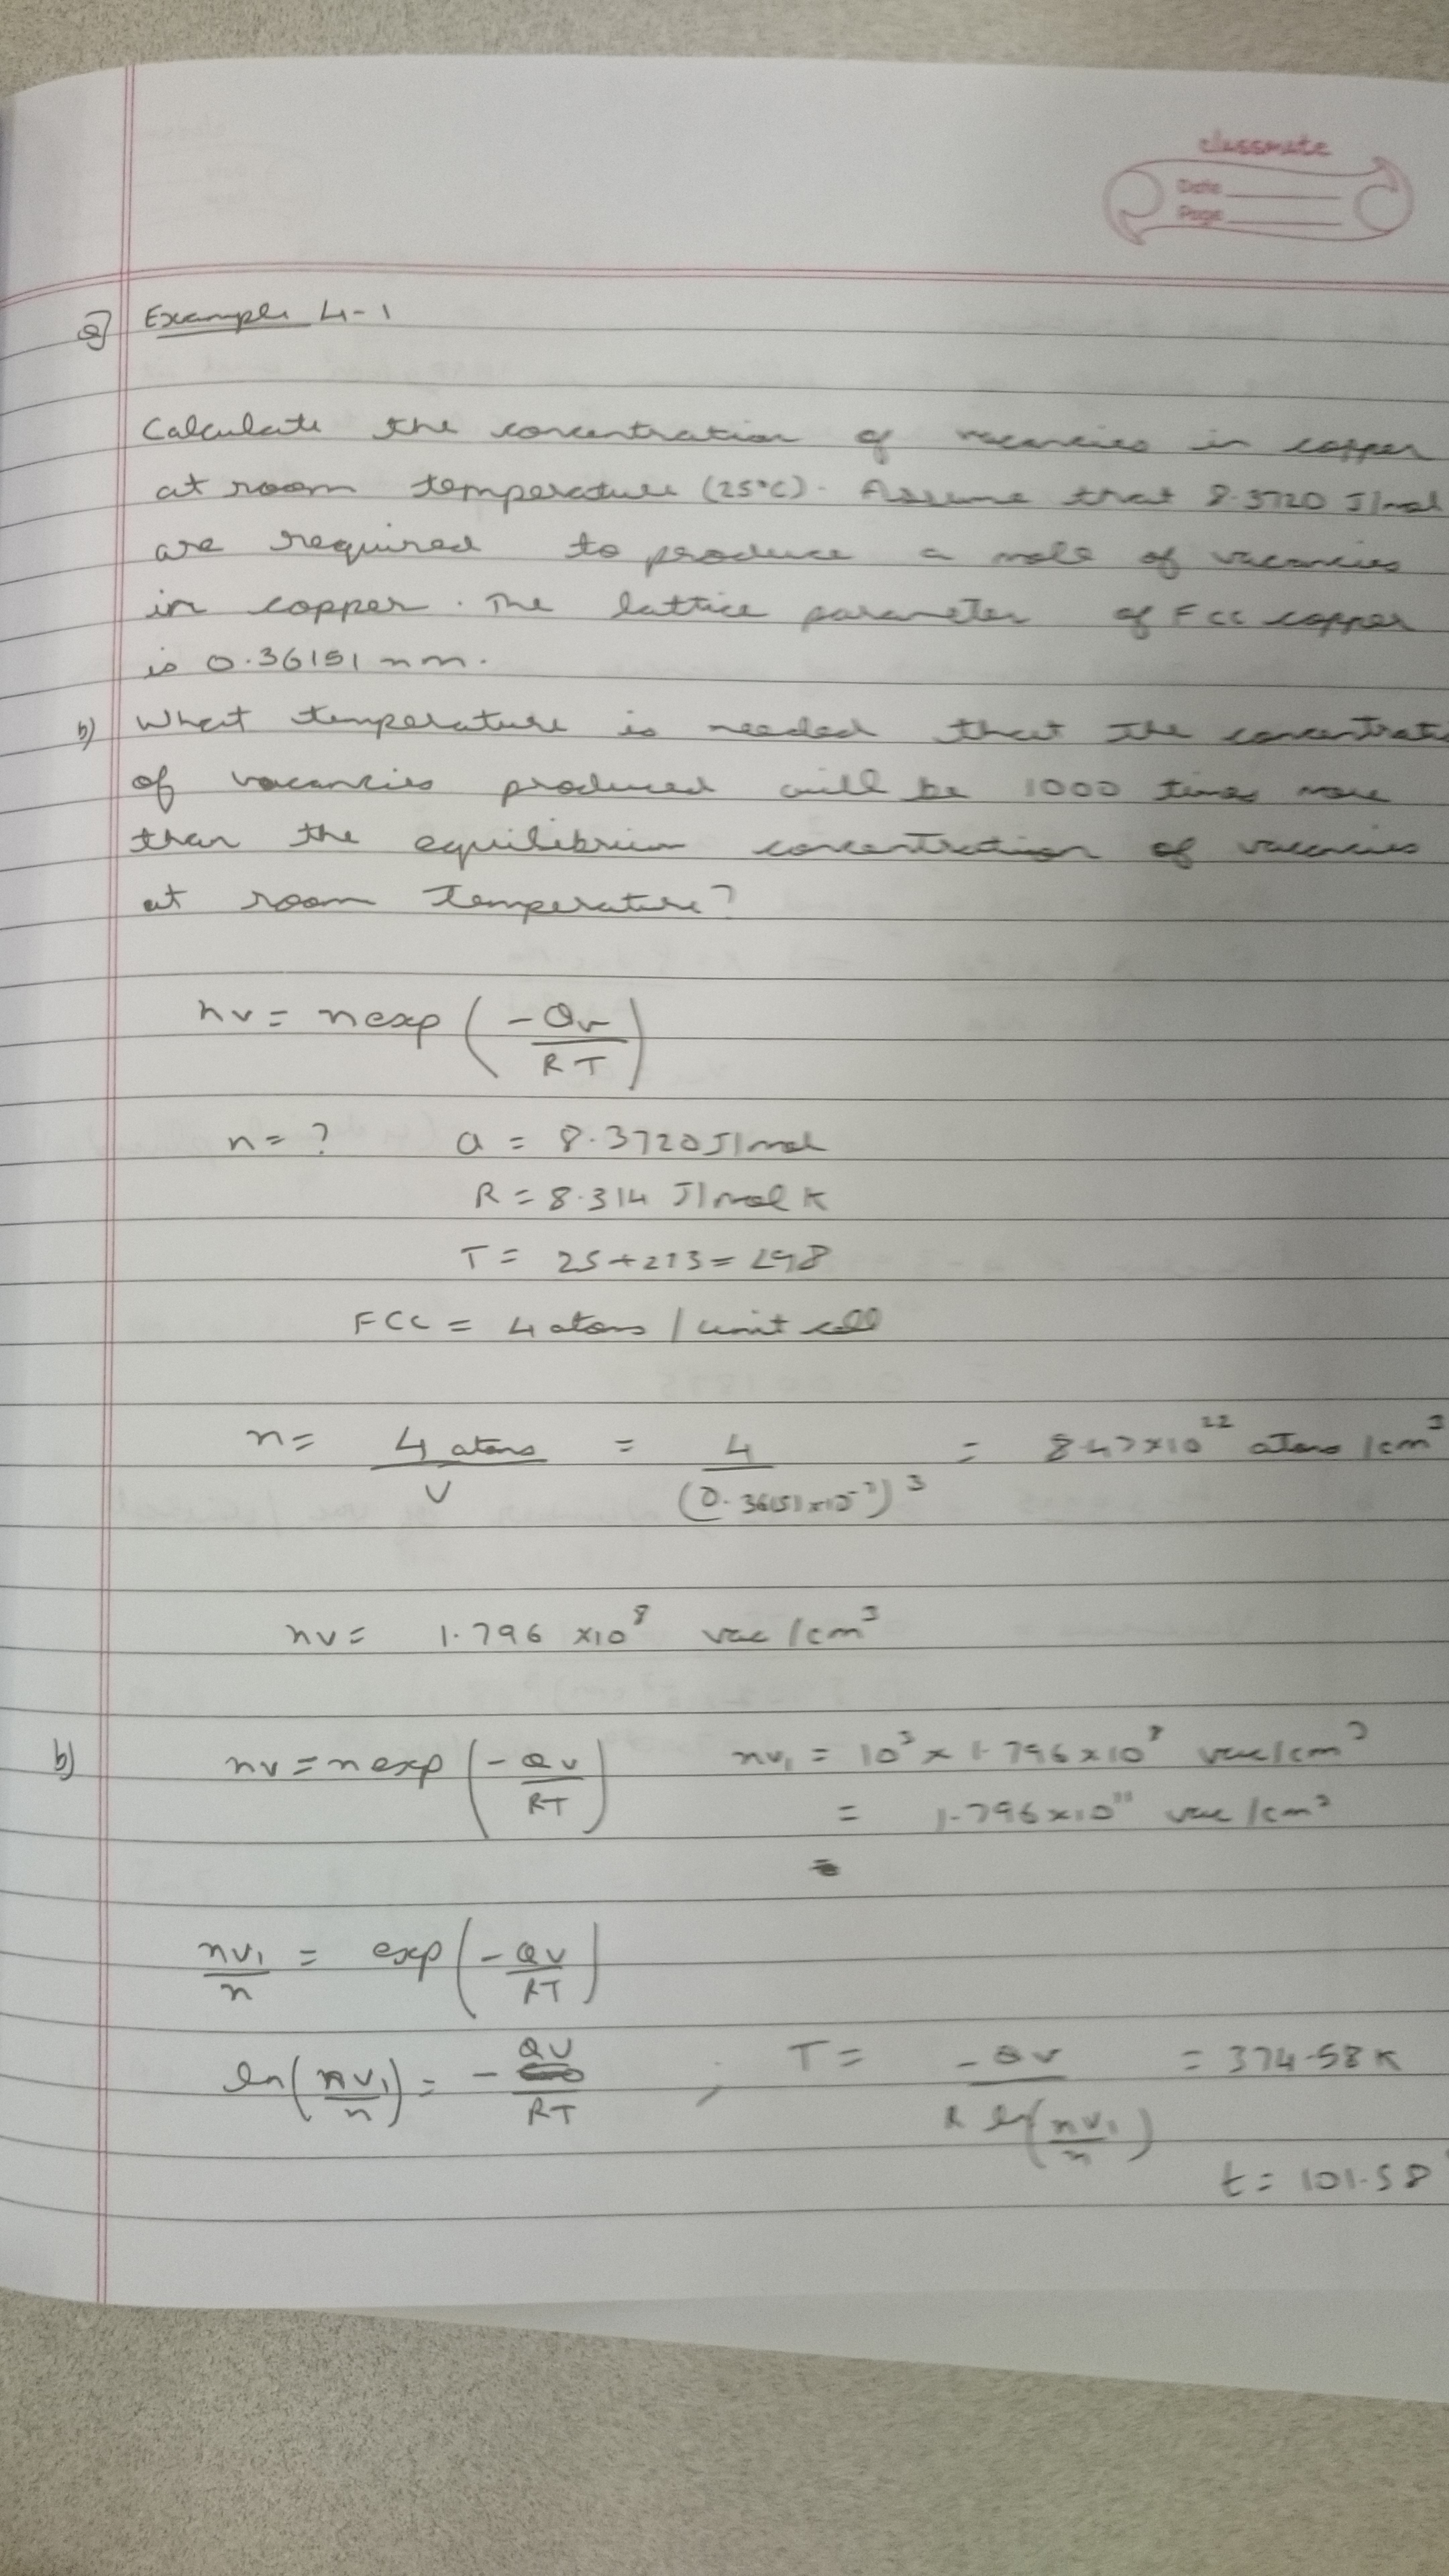 classmate
Date
Page
a) Example 4-1
Calculate the concentration of vacancies in copper
at room temperature (25°C). Assume that 8.3720 J/mol
are required to produce a mole of vacancies
in copper. The lattice parameter of FCC copper
is 0.36151 nm.
b) What temperature is needed that the concentrati
of vacancies produced will be 1000 times more
than the equilibrium concentration of vacancies
at room temperature?
nv = n exp (-Qv / RT)
n = ? Q = 8.3720 J/mol
R = 8.314 J/mol K
T = 25+273 = 298
FCC = 4 atoms / unit cell
n = 4 atoms / V = 4 / (0.36151×10⁻⁷)³ = 8.47×10²² atoms /cm³
nv = 1.796 ×10⁸ vac /cm³
b) nv = n exp (-Qv / RT) nv₁ = 10³ × 1.796×10⁸ vac/cm³
= 1.796×10¹¹ vac /cm³
nv₁ / n = exp (-Qv / RT)
ln (nv₁ / n) = - Qv / RT , T = -Qv / R ln (nv₁ / n) = 374.58 K
t = 101.58